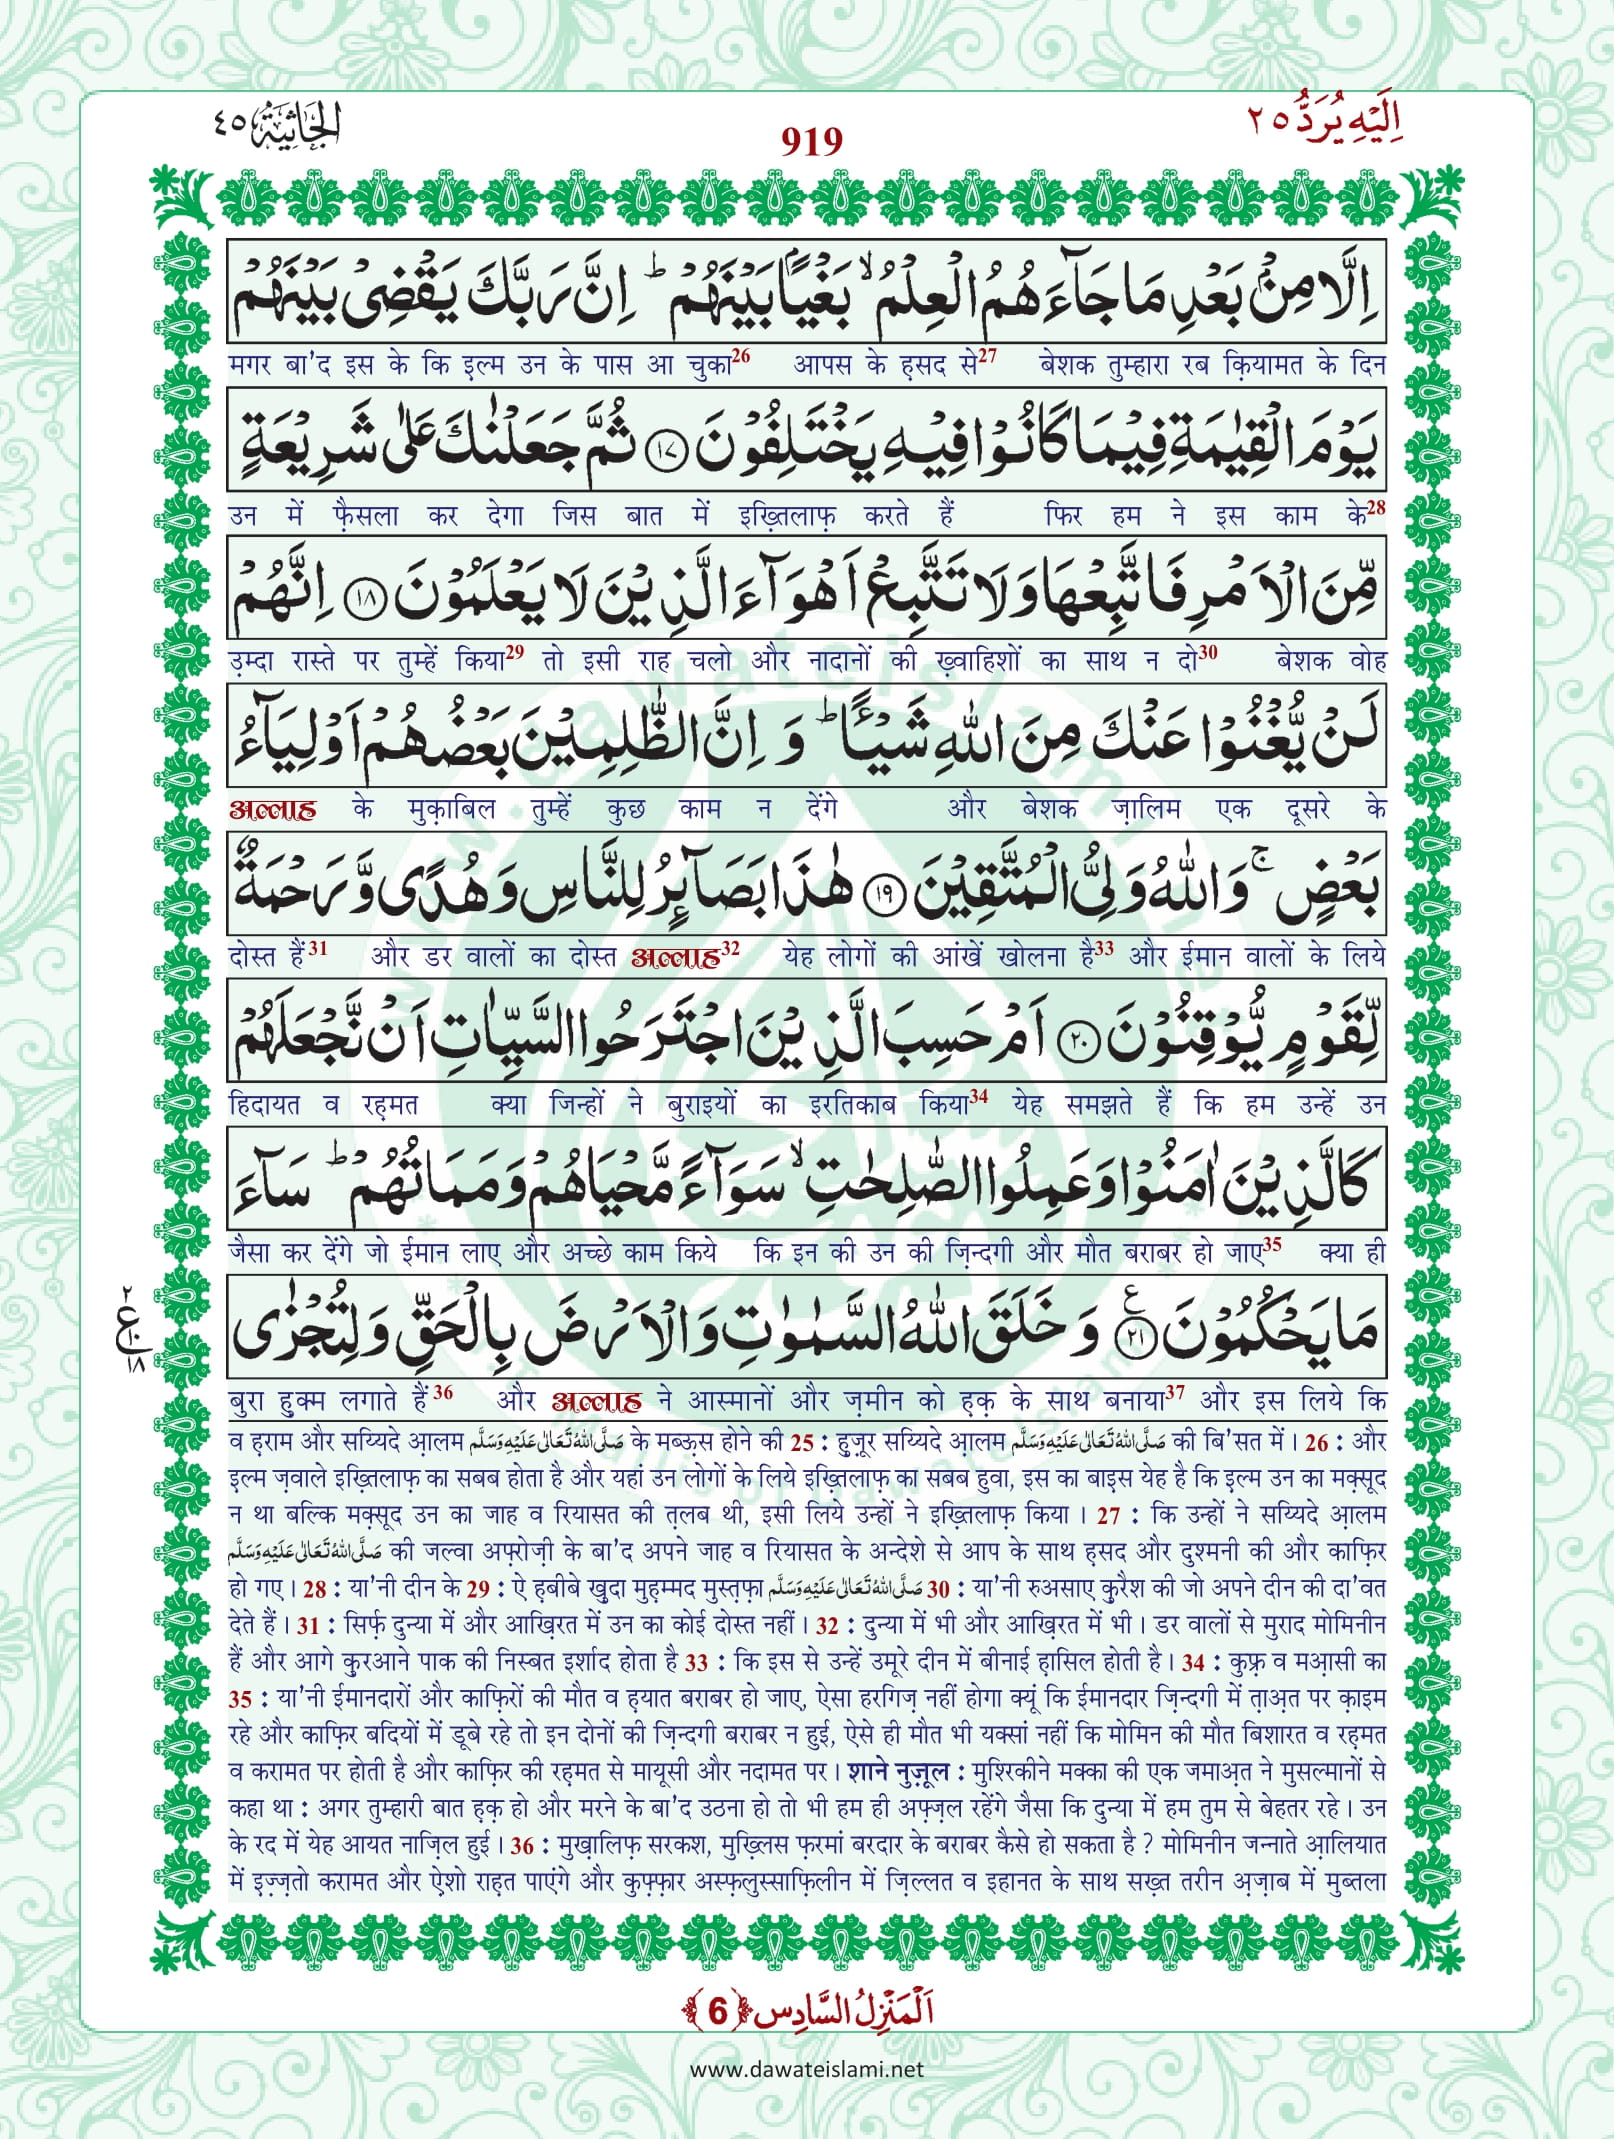 الجاثية ٤٥
919
اِلَيْهِ يُرَدُّ ٢٥
اِلَّا مِنْۢ بَعْدِ مَا جَآءَهُمُ الْعِلْمُ ۙ بَغْيًۢا بَيْنَهُمْ ؕ اِنَّ رَبَّكَ يَقْضِىْ بَيْنَهُمْ
मगर बा'द इस के कि इल्म उन के पास आ चुका26 आपस के ह़सद से27 बेशक तुम्हारा रब क़ियामत के दिन
يَوْمَ الْقِيٰمَةِ فِيْمَا كَانُوْا فِيْهِ يَخْتَلِفُوْنَ ﴿١٧﴾ ثُمَّ جَعَلْنٰكَ عَلٰى شَرِيْعَةٍ
उन में फ़ैसला कर देगा जिस बात में इख़्तिलाफ़ करते हैं फिर हम ने इस काम के28
مِّنَ الْاَمْرِ فَاتَّبِعْهَا وَلَا تَتَّبِعْ اَهْوَآءَ الَّذِيْنَ لَا يَعْلَمُوْنَ ﴿١٨﴾ اِنَّهُمْ
उ़म्दा रास्ते पर तुम्हें किया29 तो इसी राह चलो और नादानों की ख़्वाहिशों का साथ न दो30 बेशक वोह
لَنْ يُّغْنُوْا عَنْكَ مِنَ اللّٰهِ شَيْـًٔا ؕ وَ اِنَّ الظّٰلِمِيْنَ بَعْضُهُمْ اَوْلِيَآءُ
अल्लाह के मुक़ाबिल तुम्हें कुछ काम न देंगे और बेशक ज़ालिम एक दूसरे के
بَعْضٍ ۚ وَاللّٰهُ وَلِىُّ الْمُتَّقِيْنَ ﴿١٩﴾ هٰذَا بَصَآىِٕرُ لِلنَّاسِ وَهُدًى وَّ رَحْمَةٌ
दोस्त हैं31 और डर वालों का दोस्त अल्लाह32 येह लोगों की आंखें खोलना है33 और ईमान वालों के लिये
لِّقَوْمٍ يُّوْقِنُوْنَ ﴿٢٠﴾ اَمْ حَسِبَ الَّذِيْنَ اجْتَرَحُوا السَّيِّاٰتِ اَنْ نَّجْعَلَهُمْ
हिदायत व रह़मत क्या जिन्हों ने बुराइयों का इरतिकाब किया34 येह समझते हैं कि हम उन्हें उन
كَالَّذِيْنَ اٰمَنُوْا وَعَمِلُوا الصّٰلِحٰتِ ۙ سَوَآءً مَّحْيَاهُمْ وَمَمَاتُهُمْ ؕ سَآءَ
जैसा कर देंगे जो ईमान लाए और अच्छे काम किये कि इन की उन की ज़िन्दगी और मौत बराबर हो जाए35 क्या ही
مَا يَحْكُمُوْنَ ﴿٢١﴾ ع وَ خَلَقَ اللّٰهُ السَّمٰوٰتِ وَالْاَرْضَ بِالْحَقِّ وَلِتُجْزٰى
٢ ع ١٠ ١٨
बुरा ह़ुक्म लगाते हैं36 और अल्लाह ने आस्मानों और ज़मीन को ह़क़ के साथ बनाया37 और इस लिये कि
व ह़राम और सय्यिदे आ़लम صَلَّى اللهُ تَعَالٰى عَلَيْهِ وَسَلَّم के मब्ऊ़स होने की 25 : हुज़ूर सय्यिदे आ़लम صَلَّى اللهُ تَعَالٰى عَلَيْهِ وَسَلَّم की बि'सत में। 26 : और
इल्म ज़वाले इख़्तिलाफ़ का सबब होता है और यहां उन लोगों के लिये इख़्तिलाफ़ का सबब हुवा, इस का बाइस येह है कि इल्म उन का मक़्सूद
न था बल्कि मक़्सूद उन का जाह व रियासत की त़लब थी, इसी लिये उन्हों ने इख़्तिलाफ़ किया। 27 : कि उन्हों ने सय्यिदे आ़लम
صَلَّى اللهُ تَعَالٰى عَلَيْهِ وَسَلَّم की जल्वा अफ़्रोज़ी के बा'द अपने जाह व रियासत के अन्देशे से आप के साथ ह़सद और दुश्मनी की और काफ़िर
हो गए। 28 : या'नी दीन के 29 : ऐ ह़बीबे ख़ुदा मुह़म्मद मुस्त़फ़ा صَلَّى اللهُ تَعَالٰى عَلَيْهِ وَسَلَّم 30 : या'नी रुअसाए क़ुरैश की जो अपने दीन की दा'वत
देते हैं। 31 : सिर्फ़ दुन्या में और आख़िरत में उन का कोई दोस्त नहीं। 32 : दुन्या में भी और आख़िरत में भी। डर वालों से मुराद मोमिनीन
हैं और आगे क़ुरआने पाक की निस्बत इर्शाद होता है 33 : कि इस से उन्हें उमूरे दीन में बीनाई ह़ासिल होती है। 34 : कुफ़्र व मआ़सी का
35 : या'नी ईमानदारों और काफ़िरों की मौत व ह़यात बराबर हो जाए, ऐसा हरगिज़ नहीं होगा क्यूं कि ईमानदार ज़िन्दगी में त़ाअ़त पर क़ाइम
रहे और काफ़िर बदियों में डूबे रहे तो इन दोनों की ज़िन्दगी बराबर न हुई, ऐसे ही मौत भी यक्सां नहीं कि मोमिन की मौत बिशारत व रह़मत
व करामत पर होती है और काफ़िर की रह़मत से मायूसी और नदामत पर। शाने नुज़ूल : मुश्रिकीने मक्का की एक जमाअ़त ने मुसल्मानों से
कहा था : अगर तुम्हारी बात ह़क़ हो और मरने के बा'द उठना हो तो भी हम ही अफ़्ज़ल रहेंगे जैसा कि दुन्या में हम तुम से बेहतर रहे। उन
के रद में येह आयत नाज़िल हुई। 36 : मुख़ालिफ़ सरकश, मुख़्लिस फ़रमां बरदार के बराबर कैसे हो सकता है ? मोमिनीन जन्नाते आ़लियात
में इज़्ज़तो करामत और ऐ़शो राह़त पाएंगे और कुफ़्फ़ार अस्फ़लुस्साफ़िलीन में ज़िल्लत व इहानत के साथ सख़्त तरीन अ़ज़ाब में मुब्तला
اَلْمَنْزِلُ السَّادِس ﴿6﴾
www.dawateislami.net